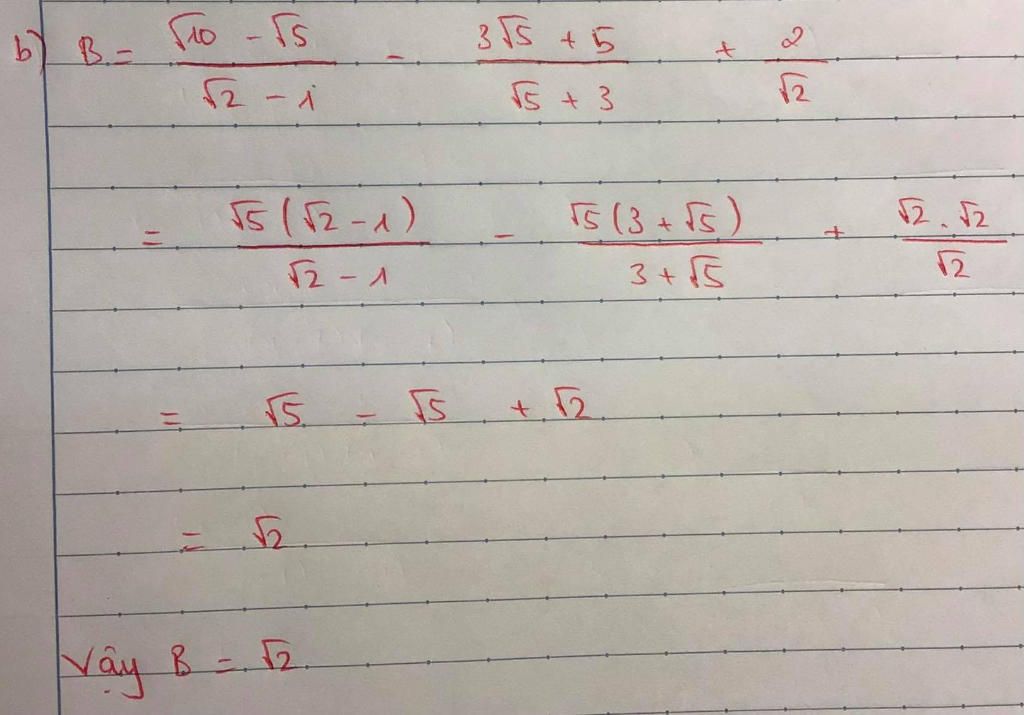 b) B = (√10 - √5)/(√2 - 1) - (3√5 + 5)/(√5 + 3) + 2/√2
= √5(√2 - 1)/(√2 - 1) - √5(3 + √5)/(3 + √5) + √2.√2/√2
= √5 - √5 + √2
= √2
Vậy B = √2